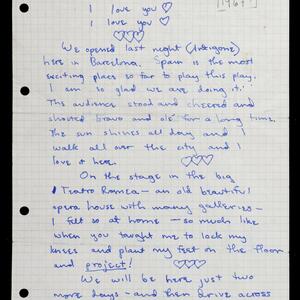 I love you ♡
I love you ♡
♡♡♡
We opened last night (Antigone)
here in Barcelona. Spain is the most
exciting place so far to play this play.
I am so glad we are doing it.
The audience stood and cheered and
shouted bravo and olé for a long time.
The sun shines all day and I
walk all over the city and I
love it here. ♡♡♡
On the stage in the big
Teatro Romea — an old beautiful
opera house with many galleries —
I felt so at home — so much like
when you taught me to lock my
knees and plant my feet on the floor
and project! ♡♡♡
We will be here just two
more days — and then drive across